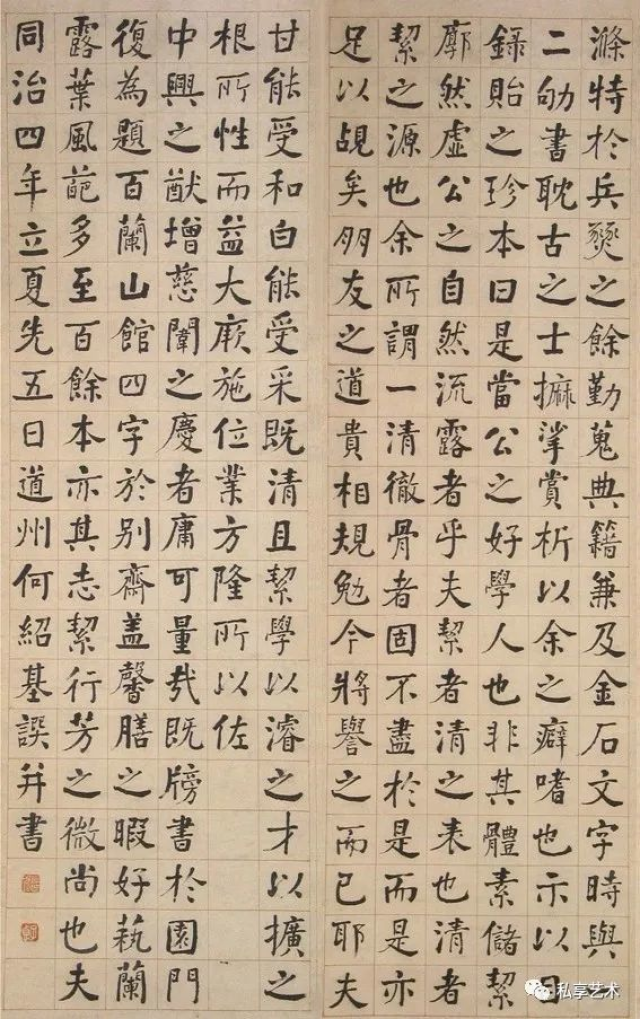 滌特於兵燹之餘勤蒐典籍兼及金石文字時與一
二劬書耽古之士挲賞析以余之癖嗜也示以日
錄貽之珍本曰是當公之好學人也非其體素儲絜
廓然虛公之自然流露者乎夫絜者清之表也清者
絜之源也余所謂一清徹骨者固不盡於是而是亦
足以覘矣朋友之道貴相規勉今將譽之而已耶夫
甘能受和白能受采既清且絜學以濬之才以擴之
根所性而益大厥施位業方隆所以佐
中興之猷增慈闈之慶者庸可量哉既牓書於園門
復為題百蘭山館四字於別齋蓋馨膳之暇好蓺蘭
露葉風葩多至百餘本亦其志絜行芳之微尚也夫
同治四年立夏先五日道州何紹基譔并書
私享艺术